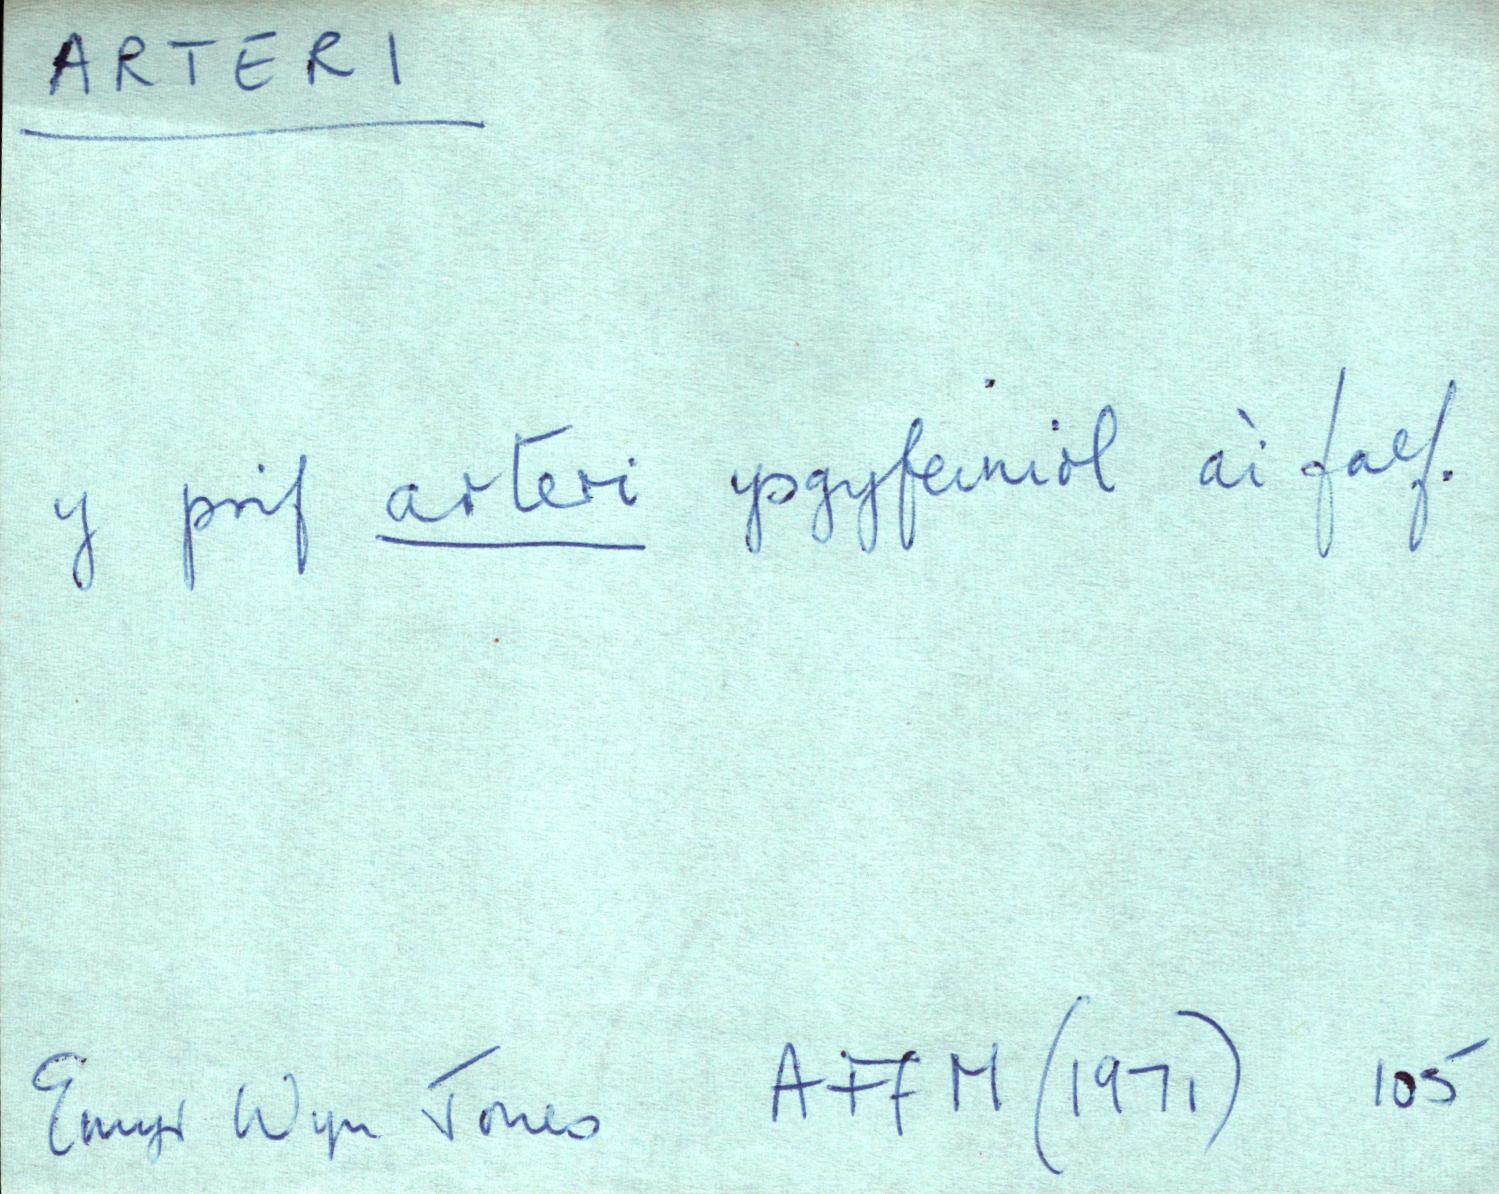 ARTERI
y prif arteri ysgyfeiniol a'i falf.
Emyr Wyn Jones AFfM (1971) 105